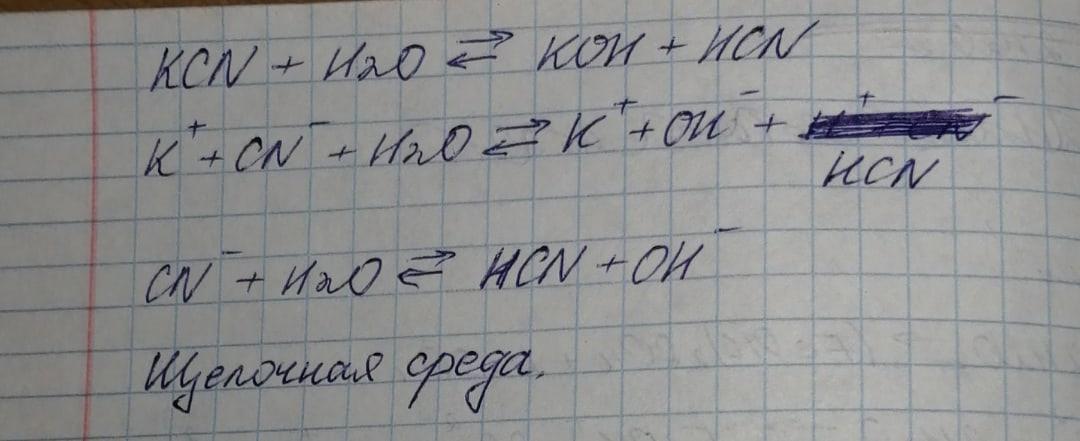 KCN + H2O ⇄ KOH + HCN
K⁺ + CN⁻ + H2O ⇄ K⁺ + OH⁻ +
HCN
CN⁻ + H2O ⇄ HCN + OH⁻
Щелочная среда.